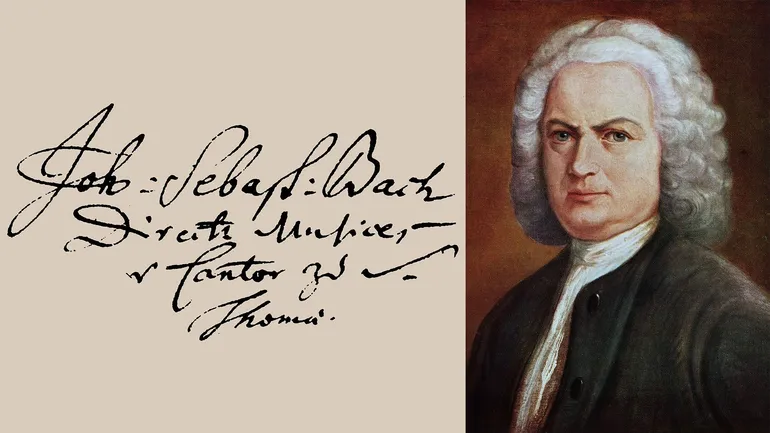 Joh: Sebast: Bach
Direct: Musices,
v Cantor zu S.
Thomæ.